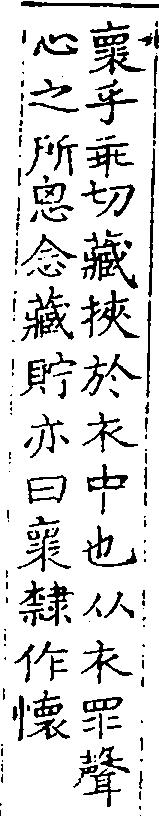 褱乎乖切藏挾於衣中也从衣眔聲
心之所恖念藏貯亦曰褱隸作懷